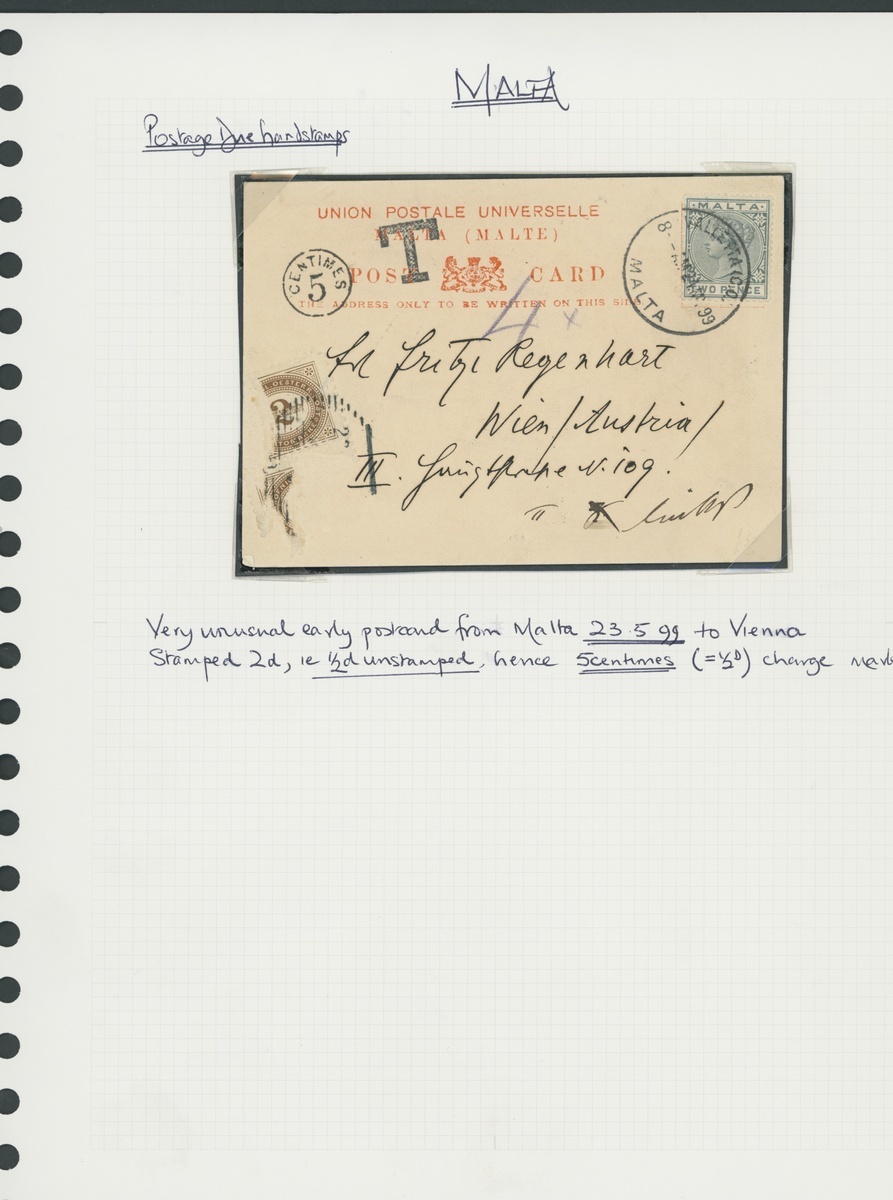 MALTA
Postage Due handstamps
UNION POSTALE UNIVERSELLE
MALTA (MALTE)
T
CENTIMES
5
POST CARD
THE ADDRESS ONLY TO BE WRITTEN ON THIS SIDE
MALTA
TWO PENCE
VALLETTA
99
MALTA
4 x
Frl Fritzi Regenhart
2
Wien/Austria/
III. N. 109.
Very unusual early postcard from Malta 23.5 99 to Vienna
Stamped 2d, ie ½d unstamped, hence 5centimes (=½D) charge mark